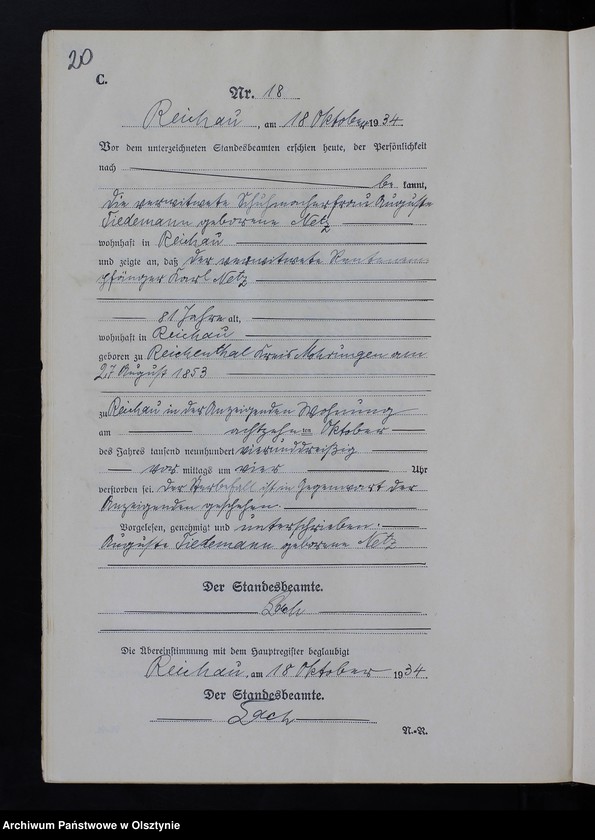 20
C.
Nr. 18
Reichau, am 18 Oktober 1934.
Vor dem unterzeichneten Standesbeamten erschien heute, der Persönlichkeit
nach
be kannt,
die verwitwete Schuhmacherfrau Auguste
Tiedemann geborene Netz
wohnhaft in Reichau
und zeigte an, daß der verwitwete Rentenem-
pfänger Karl Netz
81 Jahre alt,
wohnhaft in Reichau
geboren zu Reichenthal Kreis Mohrungen am
27 August 1853
zu Reichau in der Anzeigenden Wohnung
am achtzehn ten Oktober
des Jahres tausend neunhundert vierunddreißig
vor mittags um vier Uhr
verstorben sei. Der Sterbefall ist in Gegenwart der
Anzeigenden geschehen.
Vorgelesen, genehmigt und unterschrieben.
Auguste Tiedemann geborene Netz
Der Standesbeamte.
Die Übereinstimmung mit dem Hauptregister beglaubigt
Reichau, am 18 Oktober 1934.
Der Standesbeamte.
N.-N.
Archiwum Państwowe w Olsztynie